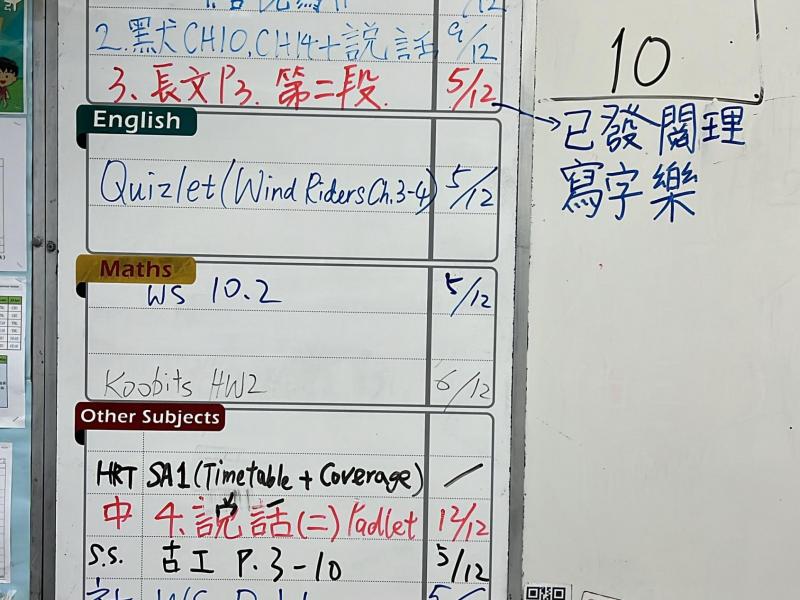 /12
2.黑犬CH10,CH14+説話 9/12
3、長文P3.第二段. 5/12
10
已發閱理
寫字樂
English
Quizlet(Wind Riders Ch.3-4) 5/12
Maths
WS 10.2 5/12
Koobits HW2 6/12
Other Subjects
HRT SA1(Timetable + Coverage) /
中 4.説話(二)Padlet 12/12
S.S. 古工 P.3-10 5/12
WS